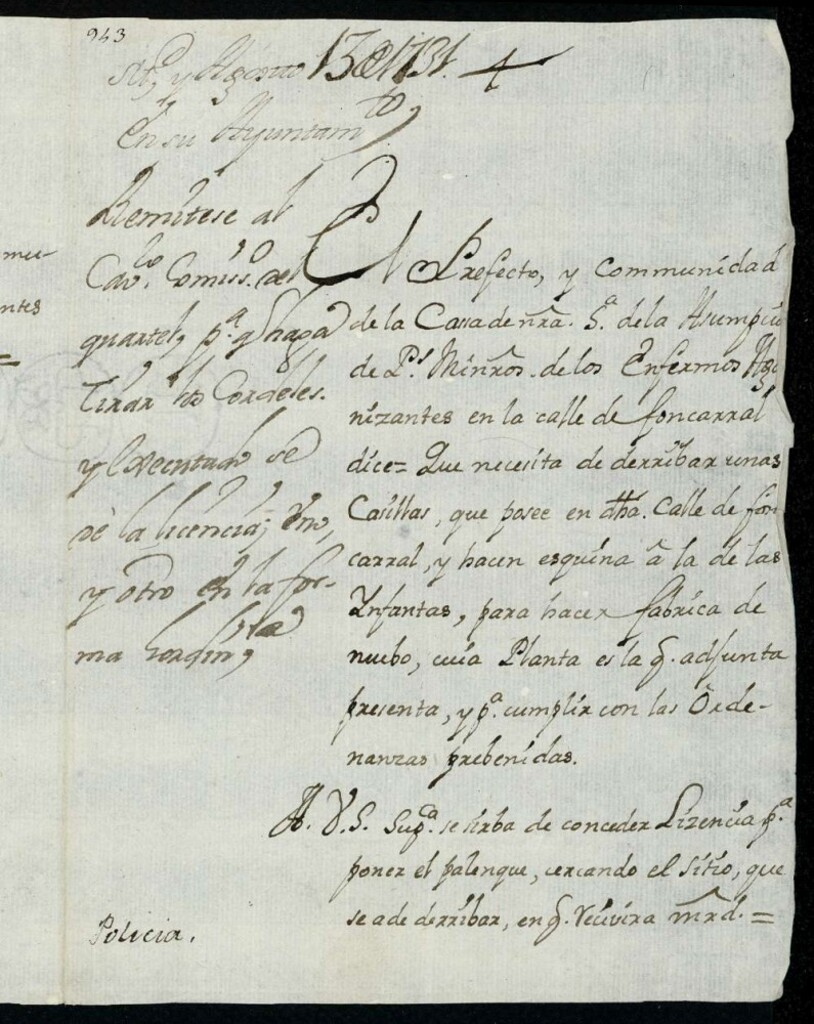 943
Md. y Agosto 13 de 1731.
En su Ayuntamto,
Remitese al
Cavo. Comisso. del
quartel, pa. q haga
tirar los Cordeles.
y executado se
dè la licencia; Uno,
y otro en la for-
ma hordinria,
El Prefecto, y Communidad
de la Casa de nra. Sa. de la Asumpcio
de Ps. Minros. de los Enfermos Ago
nizantes en la calle de foncarral
dice= Que necesita de derribar unas
Casillas, que posee en dha. Calle de fon
carral, y hacen esquina â la de las
Ynfantas, para hacer fabrica de
nuebo, cuia Planta es la q. adjunta
presenta, y pa. cumplir con las Orde-
nanzas prebenidas.
A. V.S. Supca. se sirba de conceder Lizencia pa.
poner el palenque, cercando el sitio, que
se a de derribar, en q. recivira mrd. =
Policia.
mu-
ntes